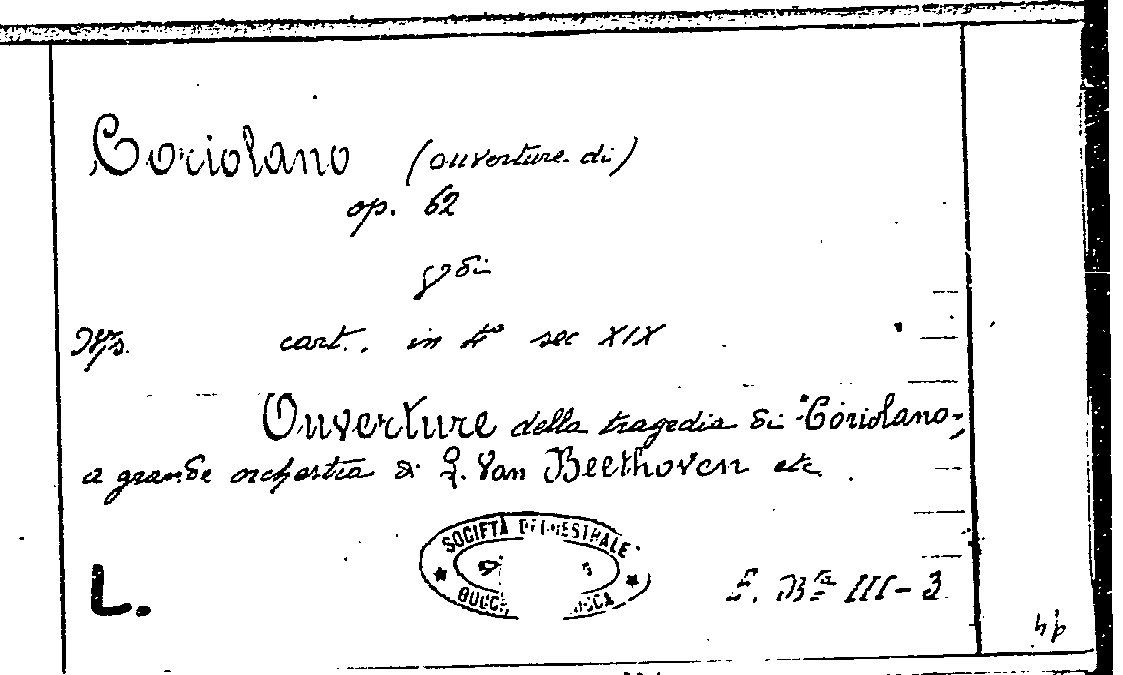 Coriolano (ouverture di)
op. 62
di
Ms. cart., in 4° sec XIX
Ouverture della tragedia di "Coriolano"
a grande orchestra di L. Van Beethoven etc.
SOCIETÀ
L.
E. Bta III-3